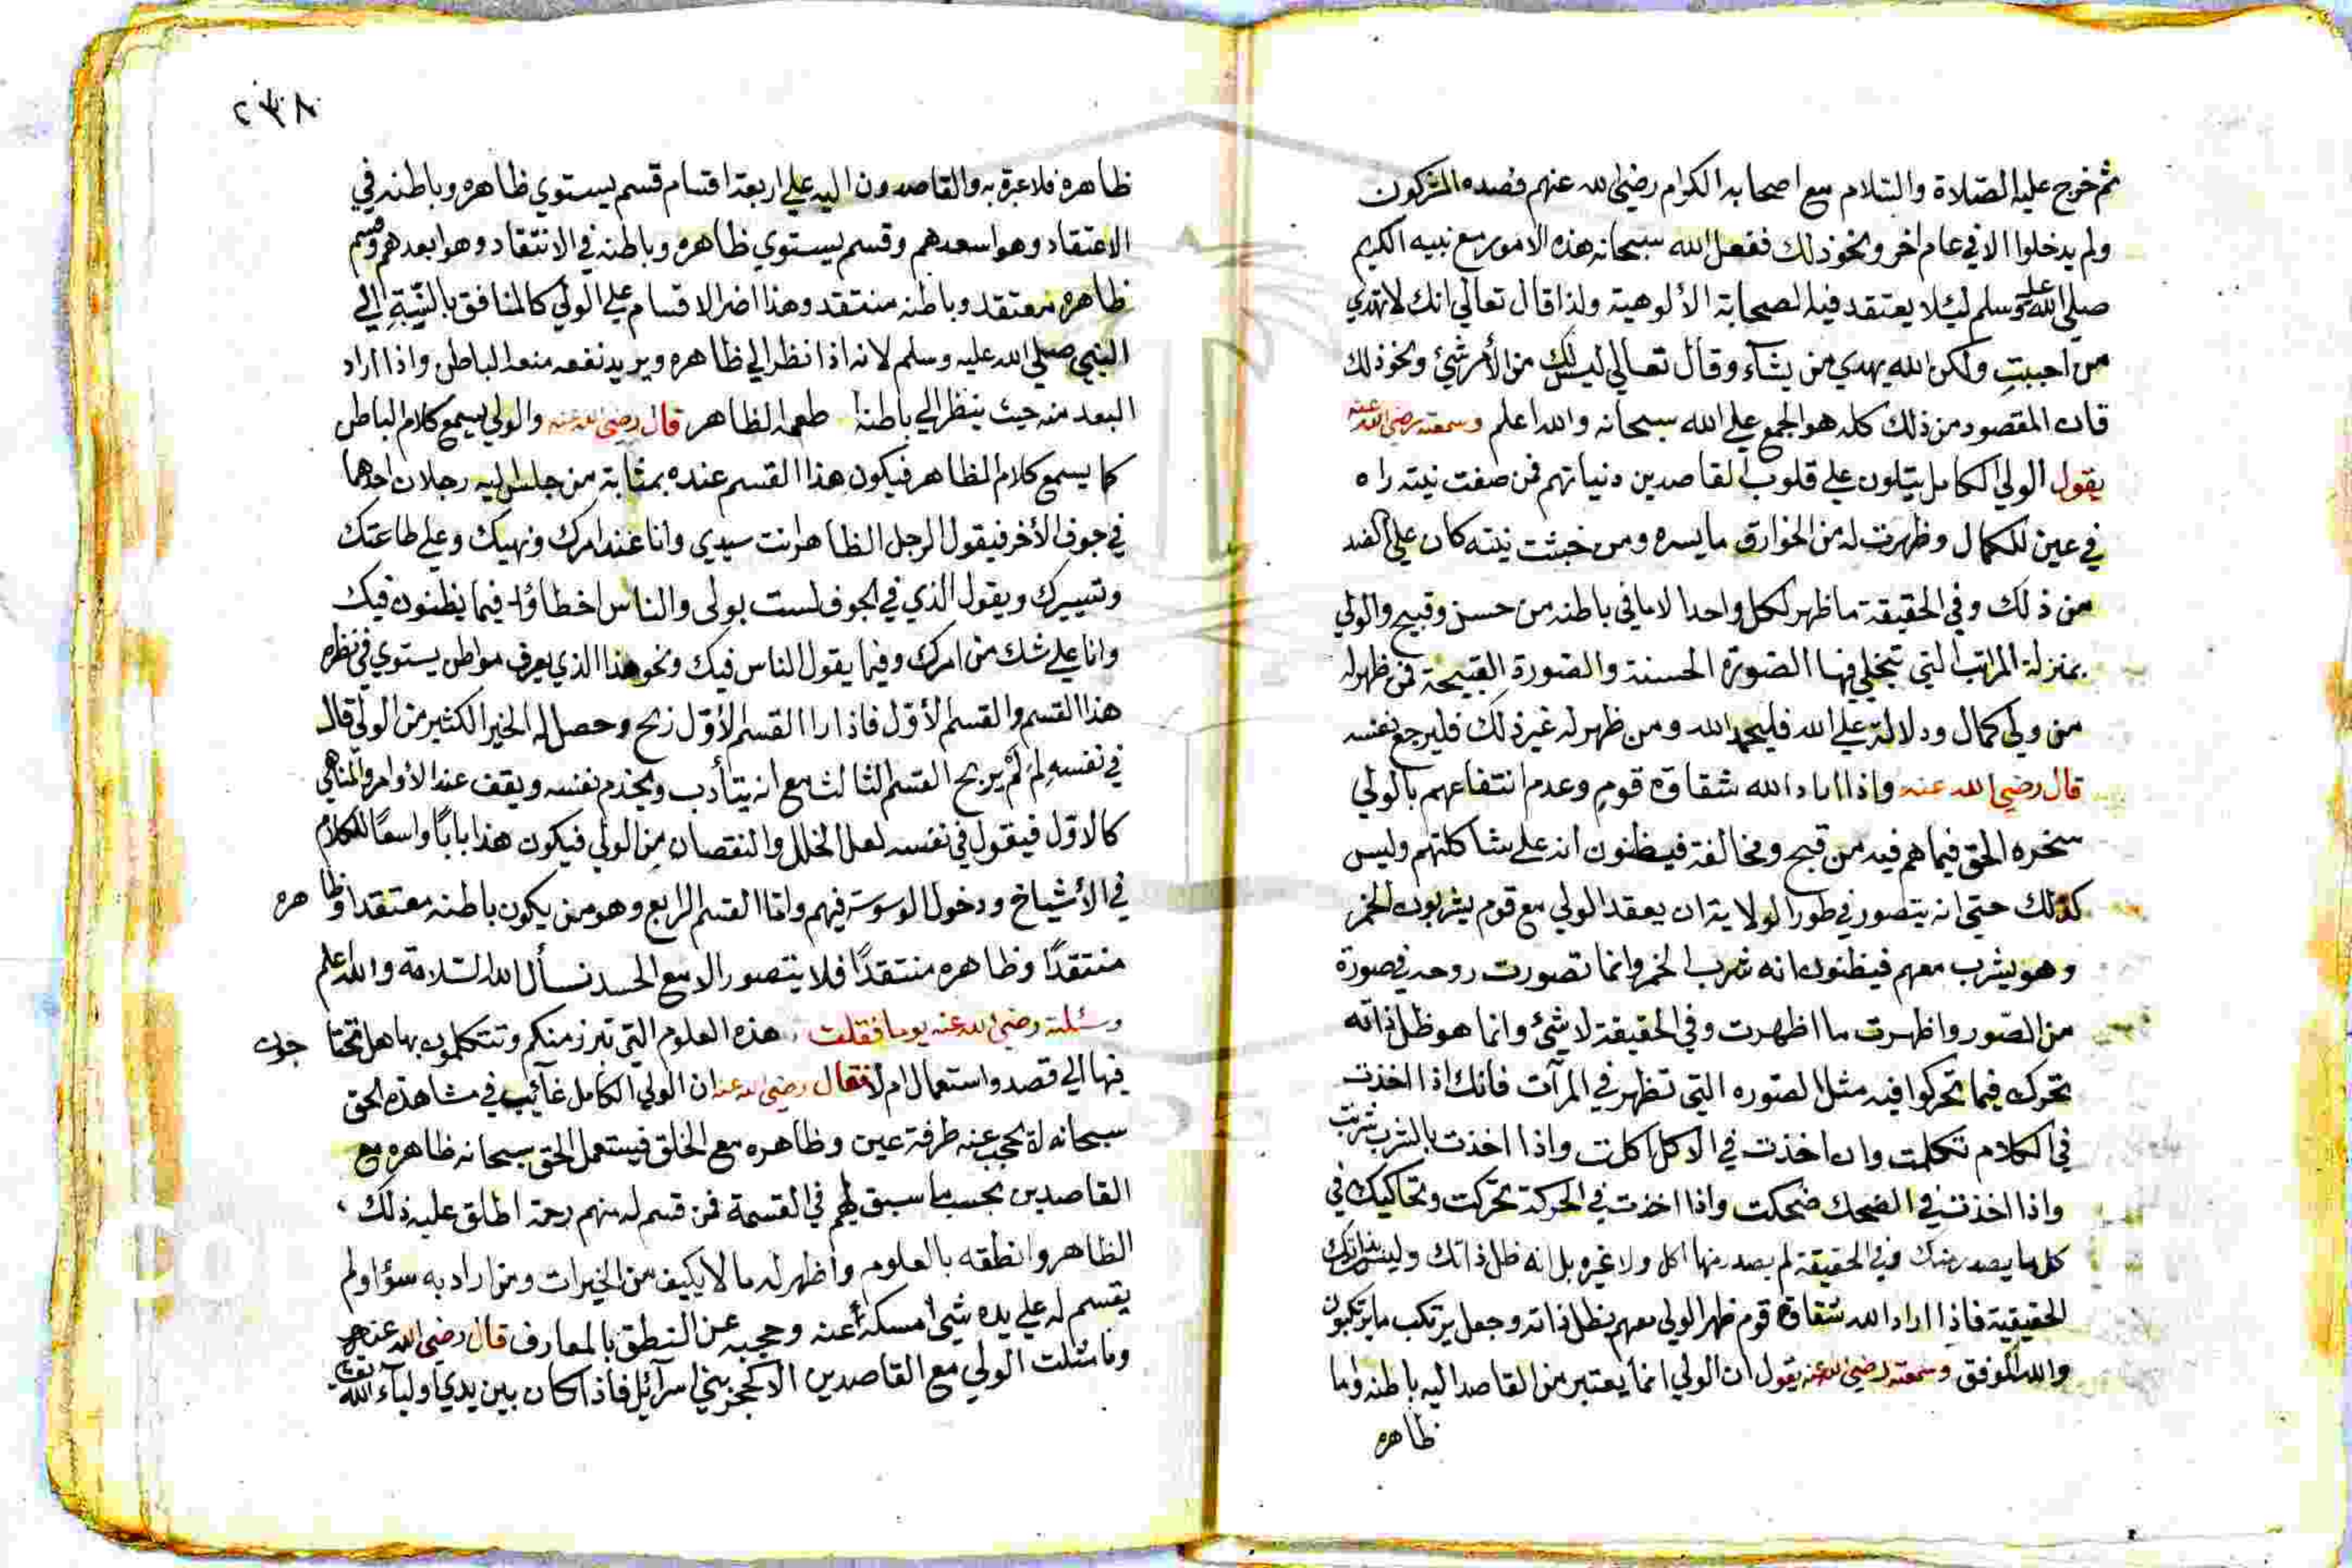 ثم خرج عليه الصلاة والسلام مع اصحابه الكرام رضي الله عنهم فصده المشركون
ولم يدخلوا الا في عام اخر ونحو ذلك ففعل الله سبحانه هذه الامور مع نبيه الكريم
صلي الله عليه وسلم ليئلا يعتقد فيه الصحابة الألوهية ولذا قال تعالي انك لا تهدي
من احببت ولكن الله يهدي من يشآء وقال تعالي ليس لك من الأمر شيئ ونحو ذلك
فان المقصود من ذلك كله هو الجمع علي الله سبحانه والله اعلم وسمعته رضي الله عنه
يقول الولي الكامل يتلون علي قلوب القاصدين ونياتهم فمن صفت نيته راه
في عين الكمال وظهرت له من الخوارق ما يسره ومن خبثت نيته كان علي الضد
من ذلك وفي الحقيقة ما ظهر لكل واحد الا ما في باطنه من حسن وقبيح والولي
بمنزلة المراتب التي تتجلي فيها الصورة الحسنة والصورة القبيحة فمن ظهر له
من ولي كمال ودلالة علي الله فليحمد الله ومن ظهر له غير ذلك فليرجع نفسه
قال رضي الله عنه واذا اراد الله شقاوة قوم وعدم انتفاعهم بالولي
سخره الحق فيما هم فيه من قبح ومخالفة فيظنون انه علي شاكلتهم وليس
كذلك حتي انه يتصور في طور الولاية ان يعقد الولي مع قوم يشربون الخمر
وهو يشرب معهم فيظنون انه شرب الخمر وانما تصورت روحه في صورة
من الصور واظهرت ما اظهرت وفي الحقيقة لا شيئ وانما هو ظل ذاته
تحرك فيما تحركوا فيه مثل الصوره التي تظهر في المرآت فانك اذا اخذت
في الكلام تكلمت وان اخذت في الاكل اكلت واذا اخذت بالشرب شربت
واذا اخذت في الضحك ضحكت واذا اخذت في الحركة تحركت وتحاكيك في
كل ما يصدر منك وفي الحقيقة لم يصدر منها اكل ولا غيره بل انه ظل ذاتك وليست ذاتك
الحقيقية فاذا اراد الله شقاوة قوم ظهر الولي معهم بظل ذاته وجعل يرتكب ما يرتكبون
والله الموفق وسمعته رضي الله عنه يقول ان الولي انما يعتبر من القاصد اليه باطنه واما
ظاهره
٢٣٨
ظاهره فلا عبرة به والقاصدون اليه علي اربعة اقسام قسم يستوي ظاهره وباطنه في
الاعتقاد وهو اسعدهم وقسم يستوي ظاهره وباطنه في الانتقاد وهو ابعدهم وقسم
ظاهره معتقد وباطنه منتقد وهذا اضر الاقسام علي الولي كالمنافق بالنسبة الي
النبي صلي الله عليه وسلم لانه اذا نظر الي ظاهره ويريد نفعه منعه الباطن واذا اراد
البعد منه حيث ينظر الي باطنه طمعه الظاهر قال رضي الله عنه والولي يسمع كلام الباطن
كما يسمع كلام الظاهر فيكون هذا القسم عنده بمثابة من جلس اليه رجلان احدهما
في جوف الأخر فيقول الرجل الظاهر انت سيدي وانا عند امرك ونهيك وعلي طاعتك
ويقول الذي في الجوف لست بولي والناس اخطاؤا فيما يظنون فيك
وانا علي شك من امرك وفيما يقول الناس فيك ونحو هذا الذي يعرف مواطن يستوي في نظره
هذا القسم والقسم الأول فاذا را القسم الأول ربح وحصل له الخير الكثير من الولي قال
في نفسه لم لم يربح القسم الثالث مع انه يتأدب ويخدم نفسه ويقف عند الأوامر والمناهي
كالاول فيقول في نفسه لعل الخلل والنقصان من الولي فيكون هذا بابا واسعا للكلام
في الأشياخ ودخول الوسوسة فيهم واما القسم الرابع وهو من يكون باطنه معتقدا وظاهره
منتقدا وظاهره منتقدا فلا يتصور الا مع الحسد نسأل الله السلامة والله اعلم
وسئلته رضي الله عنه يوما فقلت هذه العلوم التي تبرز منكم وتتكلمون بها هل تحتاجون
فيها الي قصد واستعمال ام لا فقال رضي الله عنه ان الولي الكامل غآئب في مشاهدة الحق
سبحانه لا يحجب عنه طرفة عين وظاهره مع الخلق فيستعمل الحق سبحانه ظاهره مع
القاصدين بحسب ما سبق لهم في القسمة فمن قسم له منهم رحمة اطلق عليه ذلك
الظاهر وانطقه بالعلوم واظهر له ما لا يكيف من الخيرات ومن اراد به سوأ ولم
يقسم له علي يده شيئ امسكه عنه وحجبه عن النطق بالمعارف قال رضي الله عنه
وما مثلت الولي مع القاصدين الا كحجر بني اسرآئيل فاذا كان بين يدي اوليآء الله